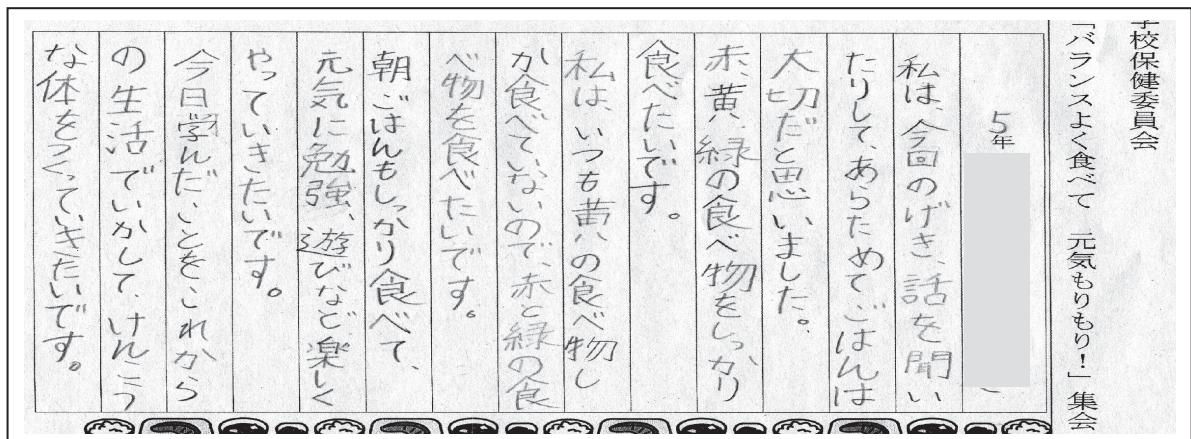 学校保健委員会
「バランスよく食べて 元気もりもり!」集会
5年
私は、今回のげき、話を聞い
たりして、あらためてごはんは
大切だと思いました。
赤、黄、緑の食べ物をしっかり
食べたいです。
私は、いつも黄の食べ物し
か食べていないので、赤と緑の食
べ物を食べたいです。
朝ごはんもしっかり食べて、
元気に勉強、遊びなど楽しく
やっていきたいです。
今日学んだことをこれから
の生活でいかして、けんこう
な体をつくっていきたいです。